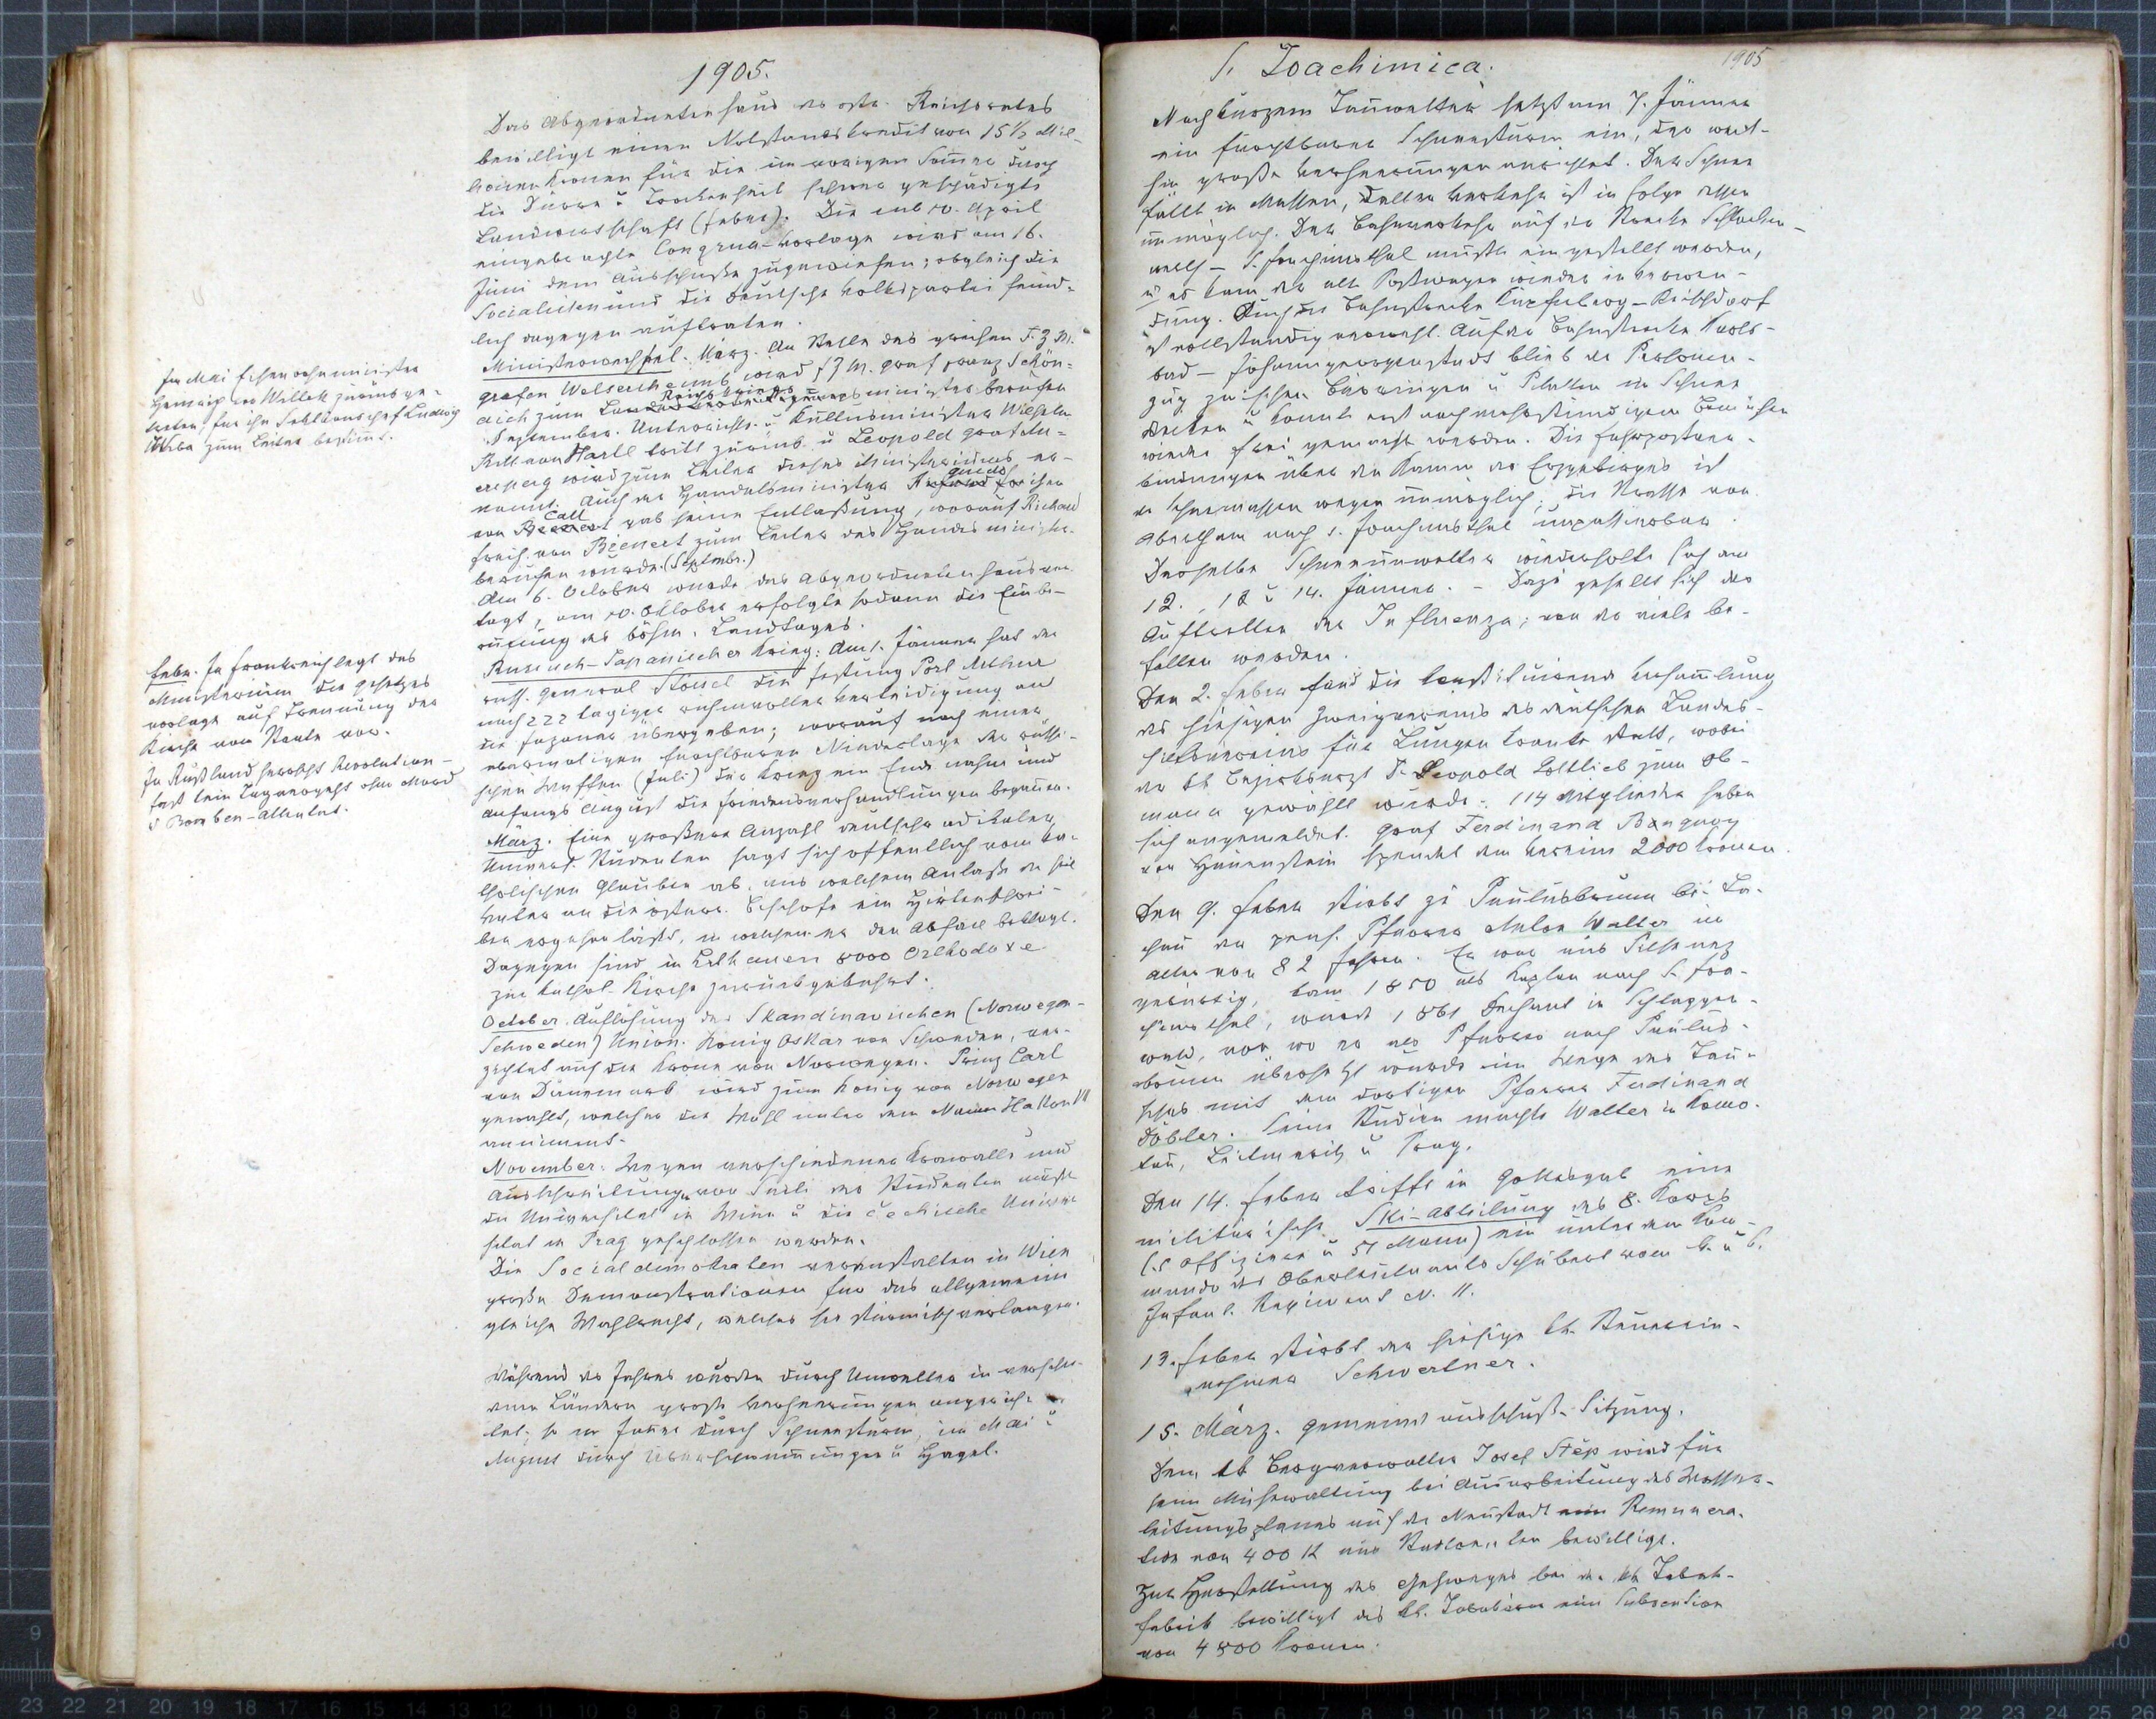 1905.
Das Abgeordnetenhaus des östr. Reichsrates
bewilligt einen Notstandskredit von 15 1/2 Mil-
lionen Kronen für die im vorigen Sommer durch
die Dürre u Trockenheit schwer geschädigte
Landwirtschaft (Feber). Die am 10. April
eingebrachte Congrua-Vorlage wird am 16.
Juni dem Ausschuße zugewiesen; obgleich die
Socialisten und die deutsche Volkspartei feind-
lich dagegen auftraten.
Ministerwechsel. März. An Stelle des greisen F. Z. M.
Grafen Welsersheimb wird F Z M. Graf Franz Schön-
aich zum Reichskriegsminister berufen
September. Unterrichts- u Kultusminister Wilhelm
Ritt. von Hartl tritt zurück u Leopold Graf Au-
ersperg wird zum Leiter dieses Ministeriums er-
nannt. Auch der Handelsminister Guido Freiherr
von Call gab seine Entlaßung, worauf Richard
Freih. von Bienert zum Leiter des Handelsminister.
berufen wurde. (Septembr.)
Am 6. October wurde das Abgeordnetenhaus ver-
tagt, am 10. Oktober erfolgte sodann die Einbe-
rufung des böhm. Landtages.
Russisch-Japanischer Krieg: Am 1. Jänner hat der
russ. General Stössel die Festung Port Arthur
nach 222 tägiger ruhmvoller Verteidigung an
die Japaner übergeben; worauf nach einer
abermaligen furchtbaren Niederlage der russi-
schen Waffen (Juli) der Krieg ein Ende nahm und
anfangs August die Friedensverhandlungen begannen.
März. Eine größere Anzahl deutscher radikaler
Universit. Studenten sagt sich öffentlich vom ka-
tholischen Glauben ab, aus welchem Anlaße der heil
Vater an die österr. Bischöfe ein Hirtenschrei-
ben ergehen läßt, in welchem er den Abfall beklagt.
Dagegen sind in Lithauen 8000 Orthodoxe
zur kathol. Kirche zurückgekehrt.
October. Auflösung der Skandinavischen (Norwegen-
Schweden) Union. König Oskar von Schweden, ver-
zichtet auf die Krone von Norwegen. Prinz Carl
von Dänemark wird zum König von Norwegen
gewählt, welcher die Wahl unter dem Namen Hakon VII
annimmt.
November. Wegen verschiedener Krawalle und
Ausschreitungen von Seite der Studenten mußte
die Universität in Wien u die čechische Univer-
sität in Prag geschlossen werden.
Die Socialdemokraten veranstalten in Wien
große Demonstrationen für das allgemeine
gleiche Wahlrecht, welches sie stürmisch verlangen.
Während des Jahres wurden durch Unwetter in verschie-
denen Ländern große Verheerungen angerich-
tet; so im Jänner durch Schneesturm, im Mai u
August durch Überschwemmungen u Hagel.
Im Mai Eisenbahnminister
Heinrich von Wittek zurückge-
treten, für ihn Sektionschef Ludwig
Wrba zum Leiter bestimmt.
Feber. In Frankreich legt das
Ministerium die Gesetzes
vorlage auf Trennung der
Kirche vom Staate vor.
In Rußland herrscht Revolution-
fast kein Tag vergeht ohne Mord
u Bomben-Attentat.
S. Joachimica. 1905
Nach kurzem Tauwetter setzt am 7. Jänner
ein furchtbarer Schneesturm ein, der weit-
hin große Verheerungen anrichtet. Der Schnee
fällt in Massen, Verkehr ist in Folge dessen
unmöglich. Der Bahnverkehr auf der Strecke Schlacken-
werth - S. Joachimsthal mußte eingestellt werden,
u es kam der alte Postwagen wieder in Verwen-
dung. Auch die Bahnstrecke Kupferberg - Reischdorf
ist vollständig verweht. Auf der Bahnstrecke Karls-
bad - Johanngeorgenstadt blieb der Personen-
zug zwischen Bärringen u Platten im Schnee
stecken u konnte erst nach mehrstündigem Bemühen
wieder frei gemacht werden. Die Fahrpostver-
bindungen über den Kamm des Erzgebirges ist
der Schneemassen wegen unmöglich; die Straße von
Abertham nach S. Joachimsthal unpassierbar.
Dasselbe Schneeunwetter wiederholte sich am
12., 13 u 14. Jänner. - Dazu gesellt sich das
Auftreten der Influenza; von der viele be-
fallen werden.
Den 2. Feber fand die konstituirende Versammlung
des hiesigen Zweigvereins des deutschen Landes-
hilfsvereins für Lungenkranke statt, wobei
der kk Bezirksarzt Dr. Leopold Gottlieb zum Ob-
mann gewählt wurde. 114 Mitglieder haben
sich angemeldet. Graf Ferdinand Buquoy
von Hauenstein spendet dem Vereine 2000 Kronen.
Den 9. Feber stirbt zu Paulusbrunn bei Ta-
chau der pens. Pfarrer Anton Walter im
Alter von 82 Jahren. Er war aus
gebürtig, kam 1850 als Kaplan nach S. Joa-
chimsthal, wurde 1861 Dechant in Schlaggen-
wald, von wo er als Pfarrer nach Paulus-
brunn übersetzt wurde im Wege des Tau-
sches mit dem dortigen Pfarrer Ferdinand
Döbler. Seine Studien machte Walter in Komo-
tau, Leitmeritz u Prag.
Den 14. Feber trifft in Gottesgab eine
militärische Ski-Abteilung des 8. Korps
(5 Offiziere u 51 Mann) ein unter dem Kom-
mando des Oberleutnants Schubert vom k. u k.
Infant. Regiment N. 11.
13. Feber stirbt der hiesige kk. Steuerein-
nehmer Schwertner.
15. März. Gemeindeausschuß-Sitzung.
Dem kk Bergverwalter Josef Štěp wird für
seine Mühewaltung bei Ausarbeitung des Wasser-
leitungsplanes auf der Neustadt eine Remunera-
tion von 400 K aus Stadtrenten bewilligt.
Zur Herstellung des Gehweges bei der kk Tabak-
fabrik bewilligt das kk. eine Subvention
von 4800 Kronen.